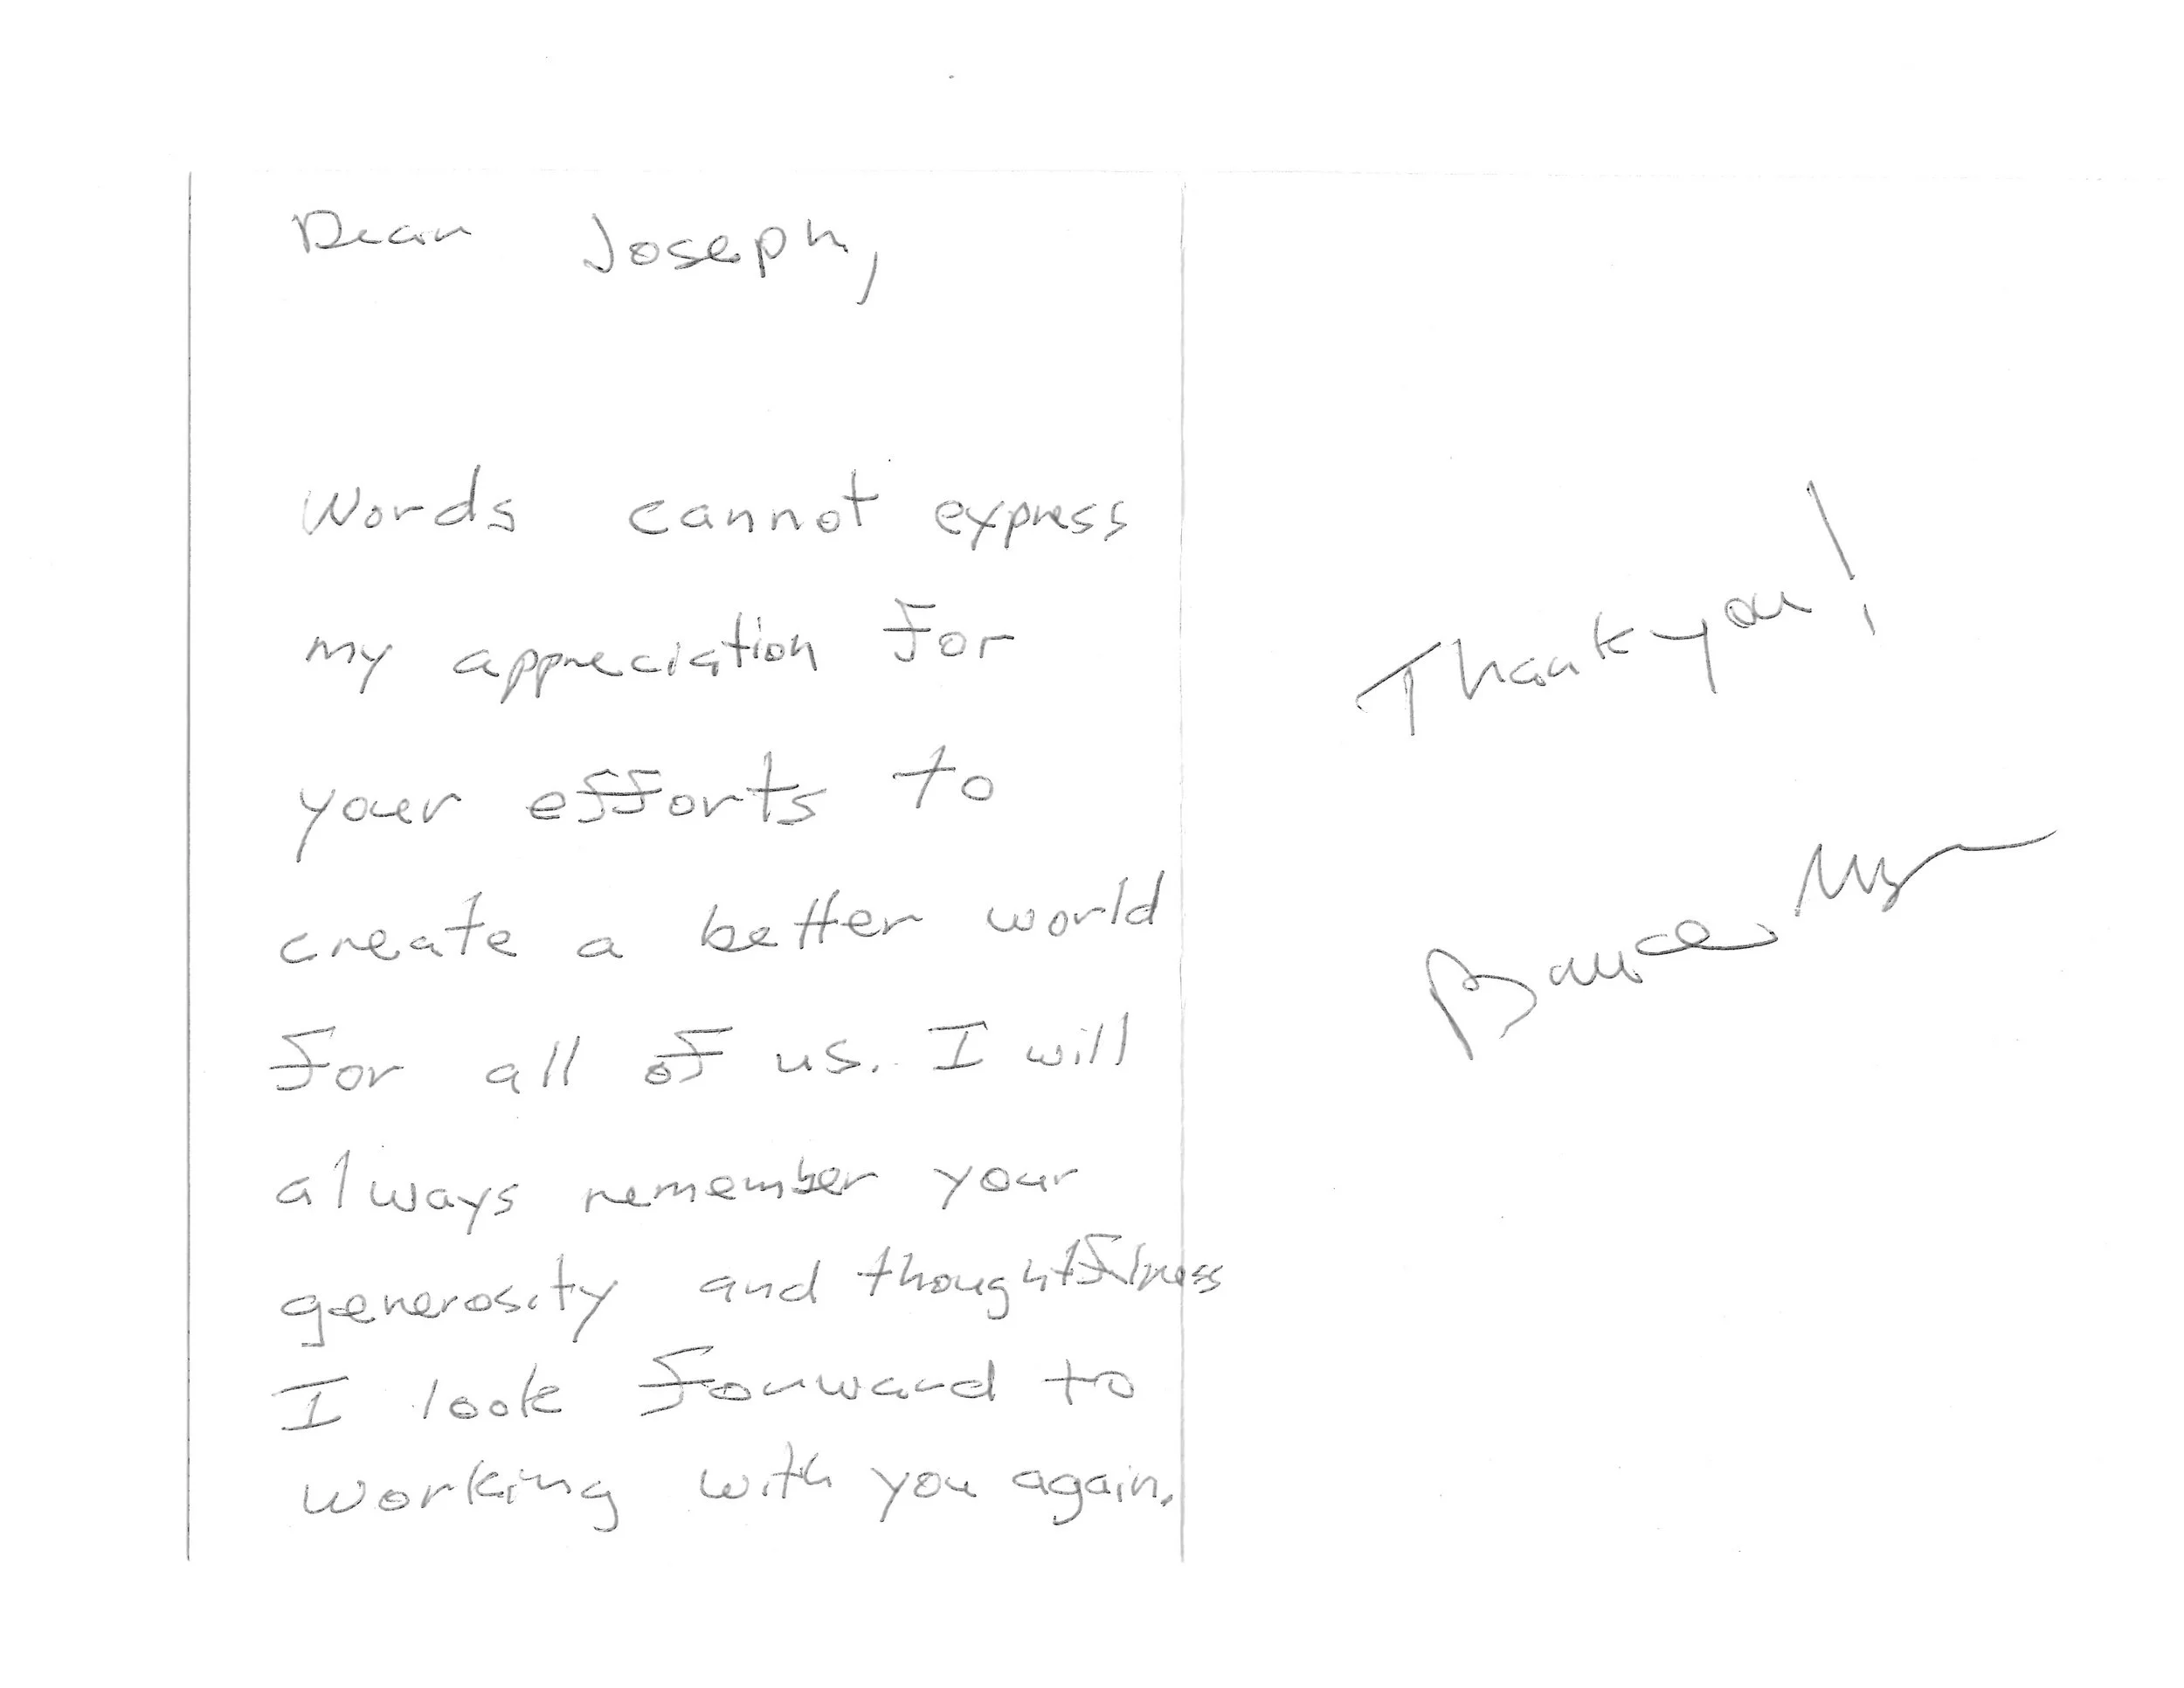 Dear Joseph,
Words cannot express
my appreciation for
your efforts to
create a better world
for all of us. I will
always remember your
generosity and thoughtfulness
I look forward to
working with you again.
Thank you!